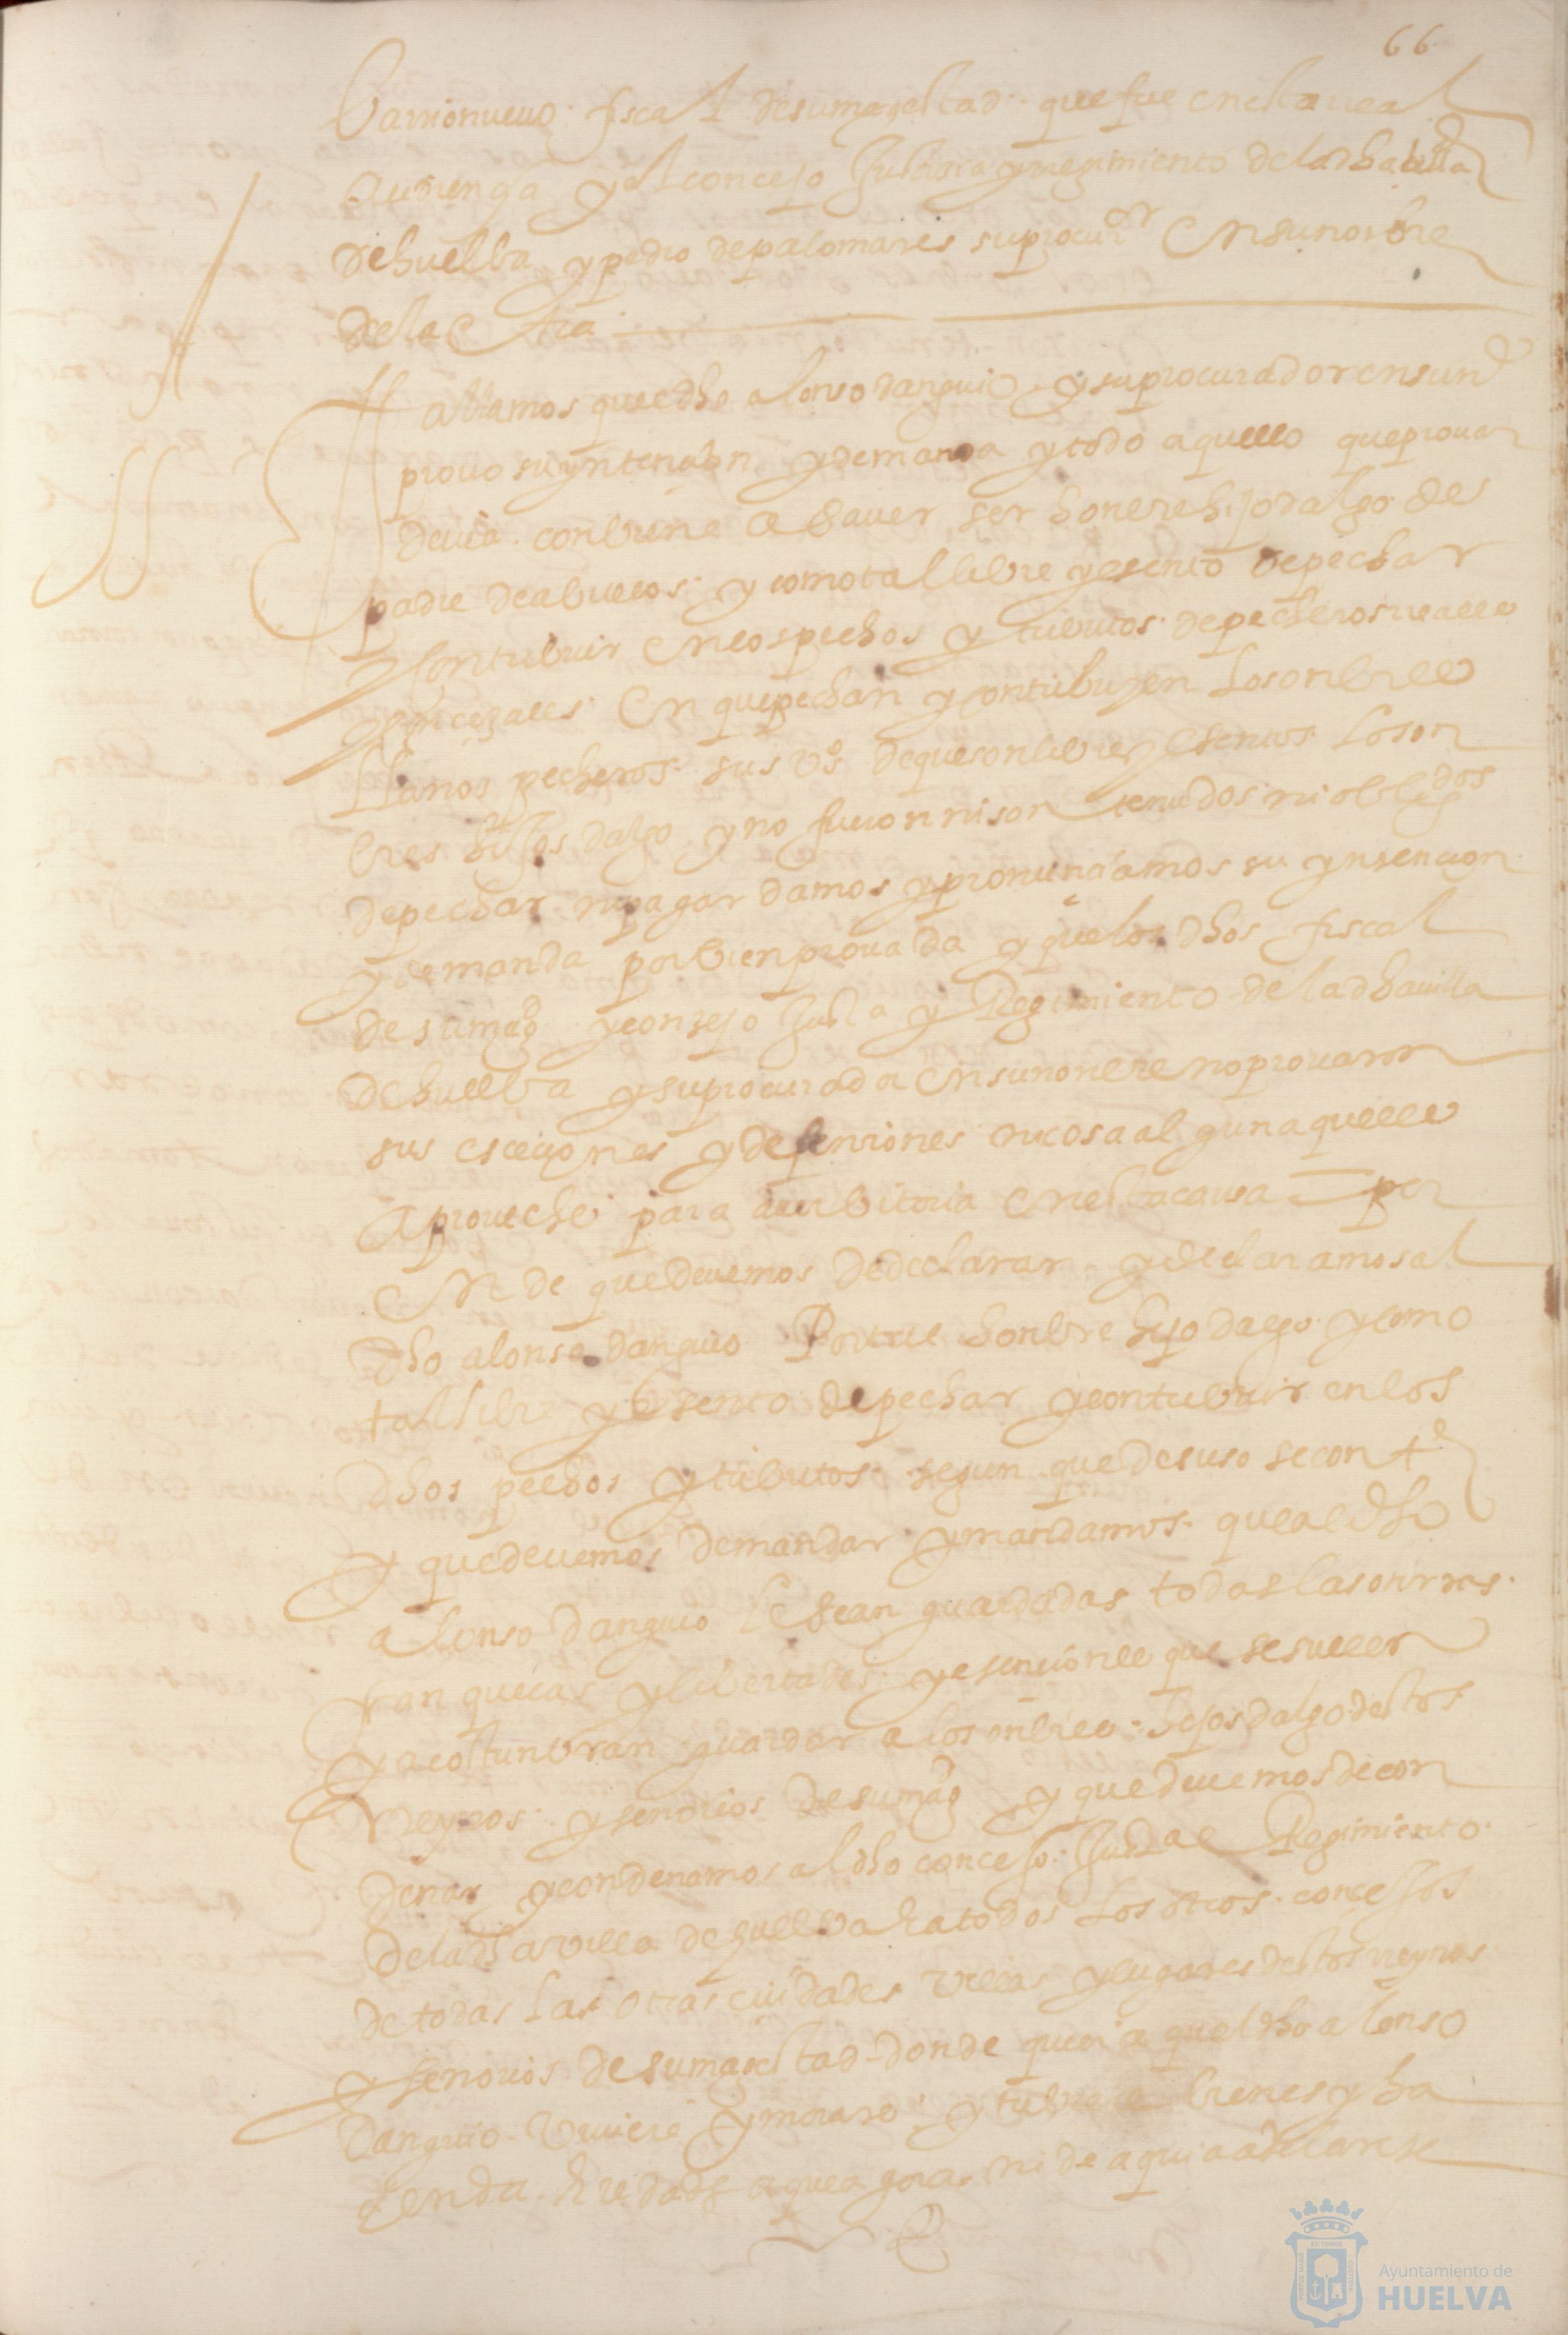 66
barrionuevo fiscal desumagestad que fue enesta real
audiençia y el concejo Justicia y regimiento de la dha billa
dehuelba y pedro depalomares su procuror en su nonbre
dela otra
Hallamos que el dho alonso danguio y su procurador en su ne
prouo su yntencion y demanda y todo aquello que prouar
deuia conbiene a sauer ser honbre hijodalgo de
padre de abuelos y como tal libre y esento de pechar
y contribuir en los pechos y tributos de pecheros reales
y concejales en que pechan y contribuyen los onbres
llanos pecheros sus vos de que son libres y esentos los on
bres hijos dalgo y no fueron ni son tenudos ni obligdos
de pechar ni pagar damos y pronunciamos su yntencion
y demanda por bien prouada y que los dhos fiscal
de su magd y consejo Justa y Regimiento de la dha uilla
de huelba y su procurador en su nonbre no prouaron
sus esceciones y defensiones ni cosa alguna que les
aproueche para auer bitoria en esta causa por
ende que deuemos de declarar y declaramos al
dho alonso danguio por tal honbre hijo dalgo y como
tal libre y esento de pechar y contribuir en los
dhos pechos y tributos segun que de suso se conte
y que deuemos de mandar y mandamos que al dho
alonso danguio le sean guardadas todas las onrras
franqueças y libertades y esenciones que se suelen
y acostunbran guardar a los onbres hijos dalgo destos
Reynos y senorios de su magd y que deuemos de con
denar y condenamos al dho concejo Justa e Regimiento
de la dha villa de huelba e a todos los otros concejos
de todas las otras ciudades villas y lugares destos reynos
y senorios de su magestad donde quier que el dho alonso
danguio viuiere y morare y tubiere bienes y ha
zienda heredades a que agora ni de aqui adelante
Ayuntamiento de
HUELVA